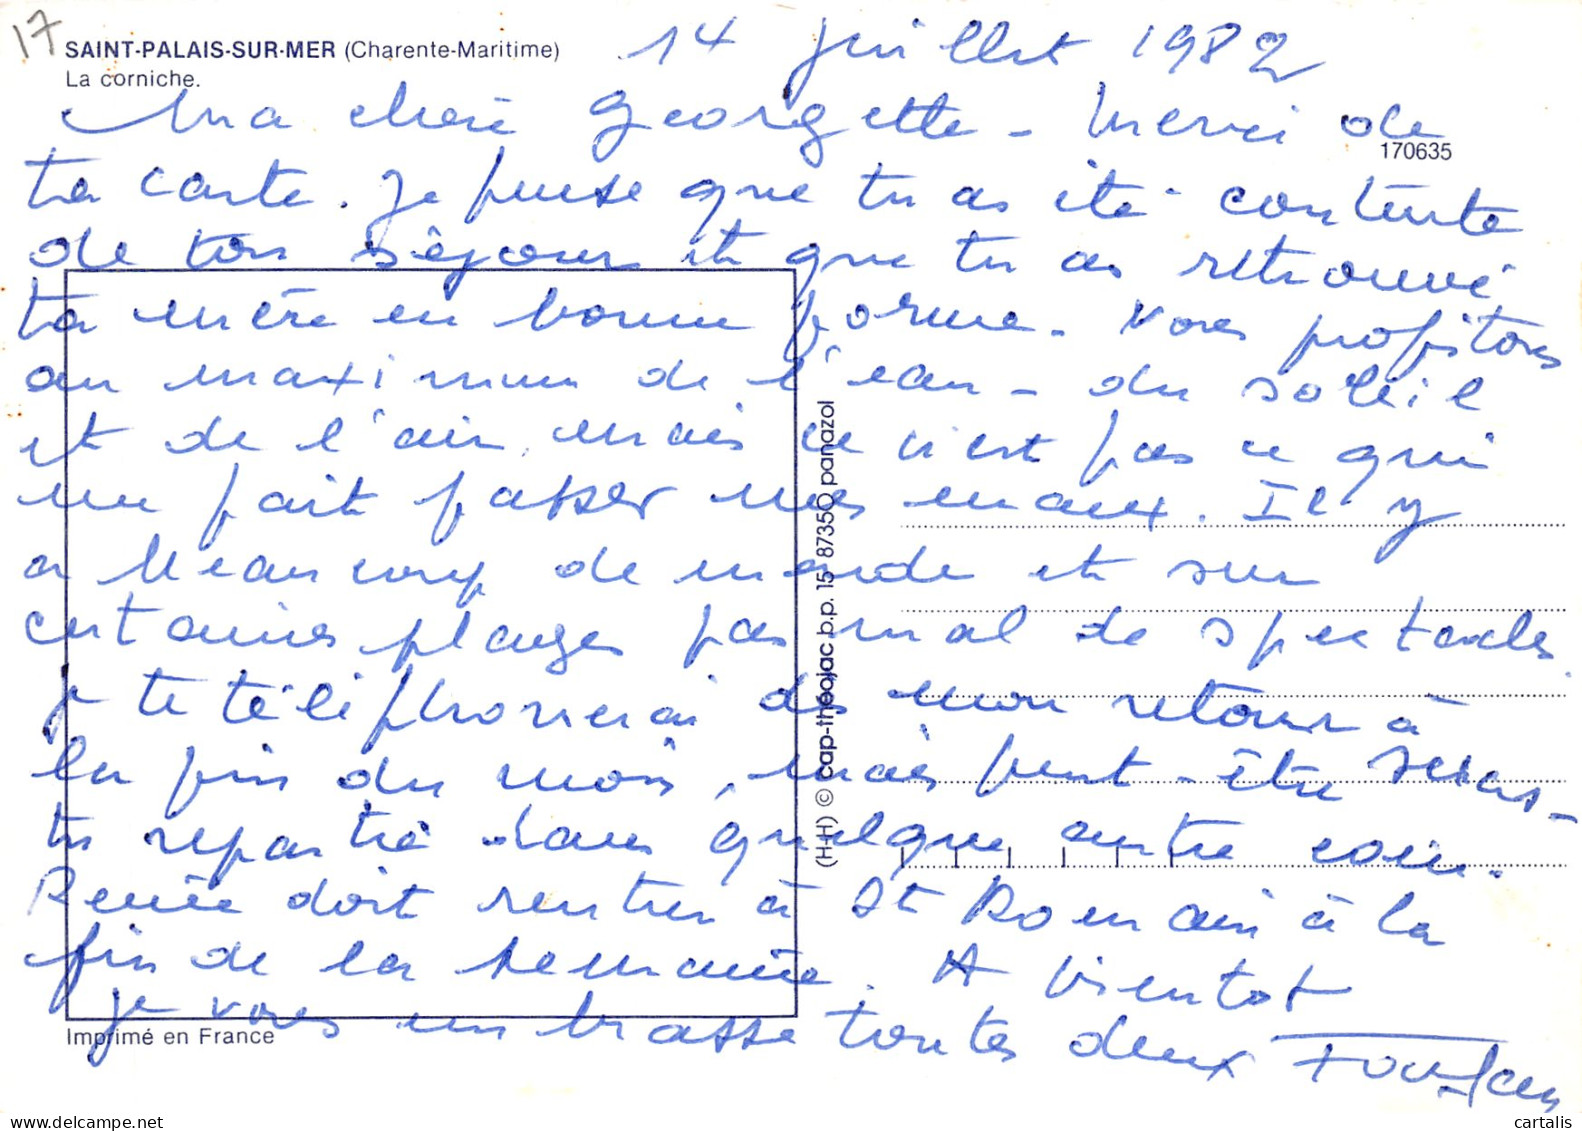 17
SAINT-PALAIS-SUR-MER (Charente-Maritime)
La corniche.
14 Juillet 1982
Ma chère Georgette - Merci de
170635
ta carte. Je pense que tu as été contente
de ton séjour et que tu as retrouvé
ta mère en bonne forme. Nous profitons
au maximum de l'eau - du soleil
et de l'air, mais ce n'est pas ce qui
me fait passer mes maux. Il y
a beaucoup de monde et sur
certaines plages pas mal de spectacles.
Je te téléphonerai dès mon retour à
la fin du mois, mais peut-être seras-
tu repartie dans quelque autre coin.
Renée doit rentrer à St Romain à la
fin de la semaine. A bientôt
Je vous embrasse toutes deux
(H-H) © cap-théojac b.p. 15 87350 panazol
Imprimé en France
cartalis